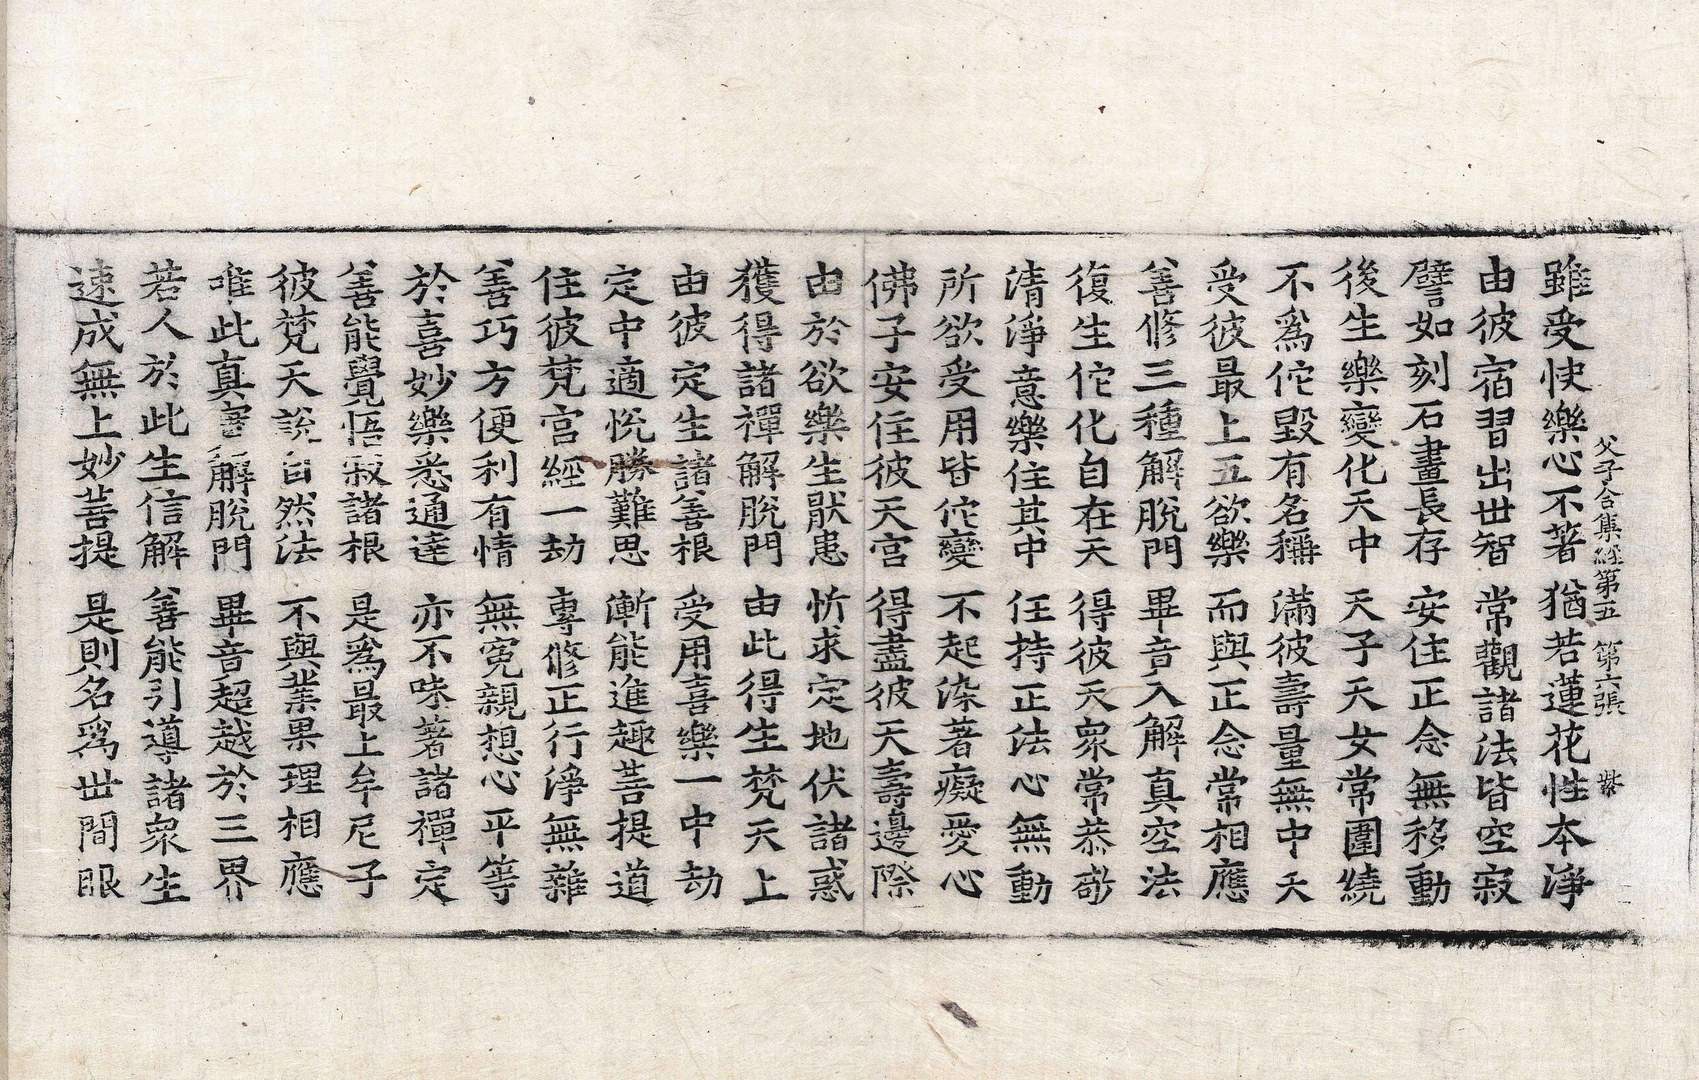 父子合集經第五　第六張　紫
雖受快樂心不著　猶若蓮花性本淨
由彼宿習出世智　常觀諸法皆空寂
譬如刻石畫長存　安住正念無移動
後生樂變化天中　天子天女常圍繞
不爲佗毀有名稱　滿彼壽量無中夭
受彼最上五欲樂　而與正念常相應
善修三種解脫門　畢竟入解真空法
復生佗化自在天　得彼天衆常恭敬
清淨意樂住其中　任持正法心無動
所欲受用皆佗變　不起染著癡愛心
佛子安住彼天宮　得盡彼天壽邊際
由於欲樂生猒患　忻求定地伏諸惑
獲得諸禪解脫門　由此得生梵天上
由彼定生諸善根　受用喜樂一中劫
定中適悅勝難思　漸能進趣菩提道
住彼梵宮經一劫　專修正行淨無雜
善巧方便利有情　無寃親想心平等
於喜妙樂悉通達　亦不味著諸禪定
善能覺悟寂諸根　是爲最上牟尼子
彼梵天說自然法　不與業果理相應
唯此真實解脫門　畢竟超越於三界
若人於此生信解　善能引導諸衆生
速成無上妙菩提　是則名爲世間眼